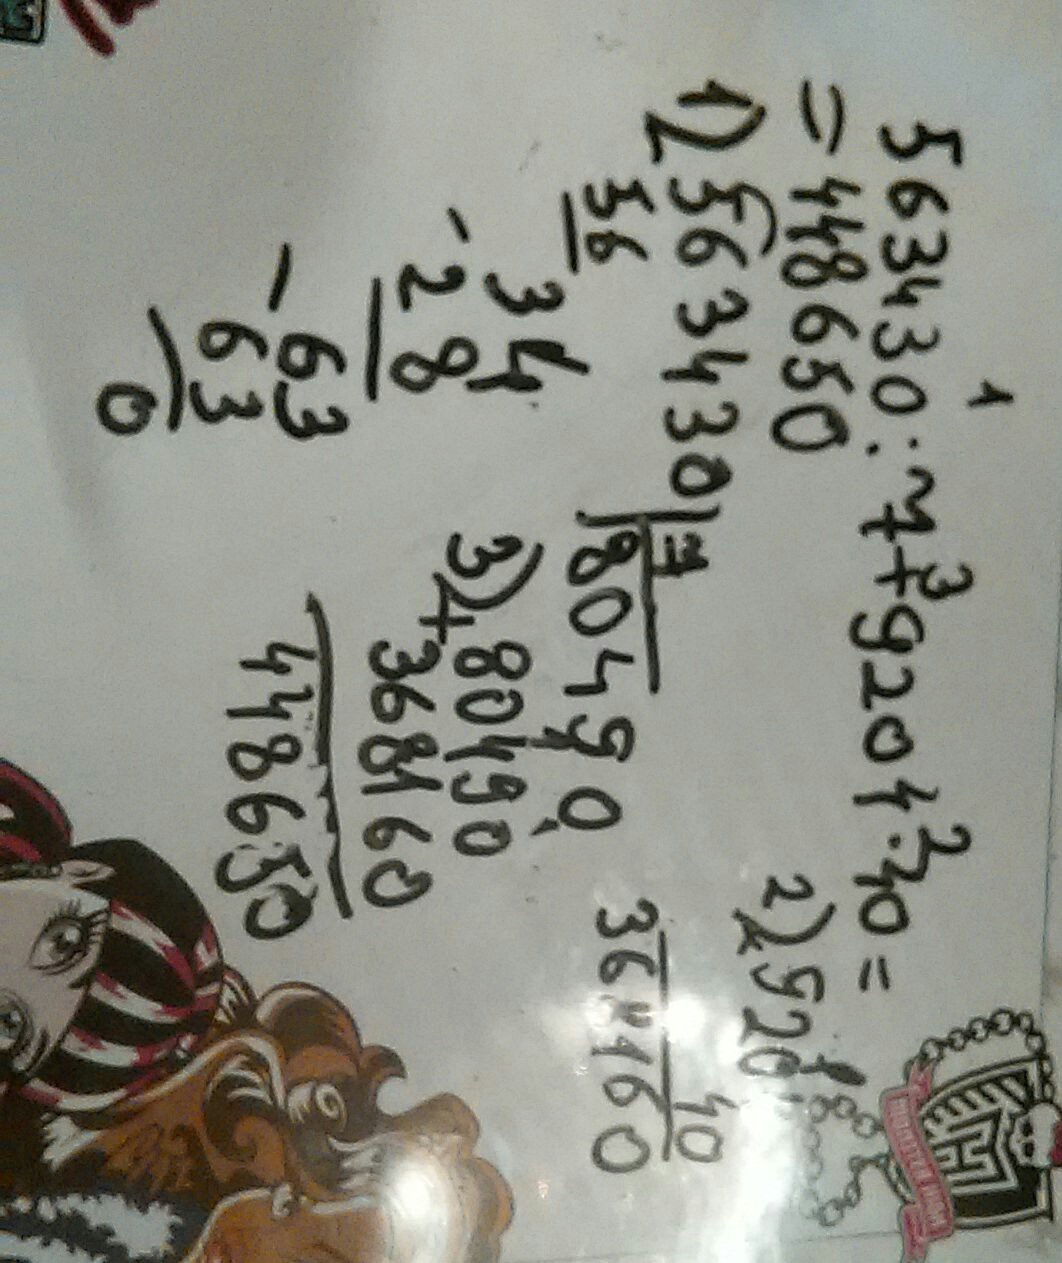 1 3 2
563430:7+9204·40=
=448650
1) 563430 | 7
56 80490
34
-28
-63
63
0
2) 9204
x 40
368160
3) 80490
+ 368160
448650